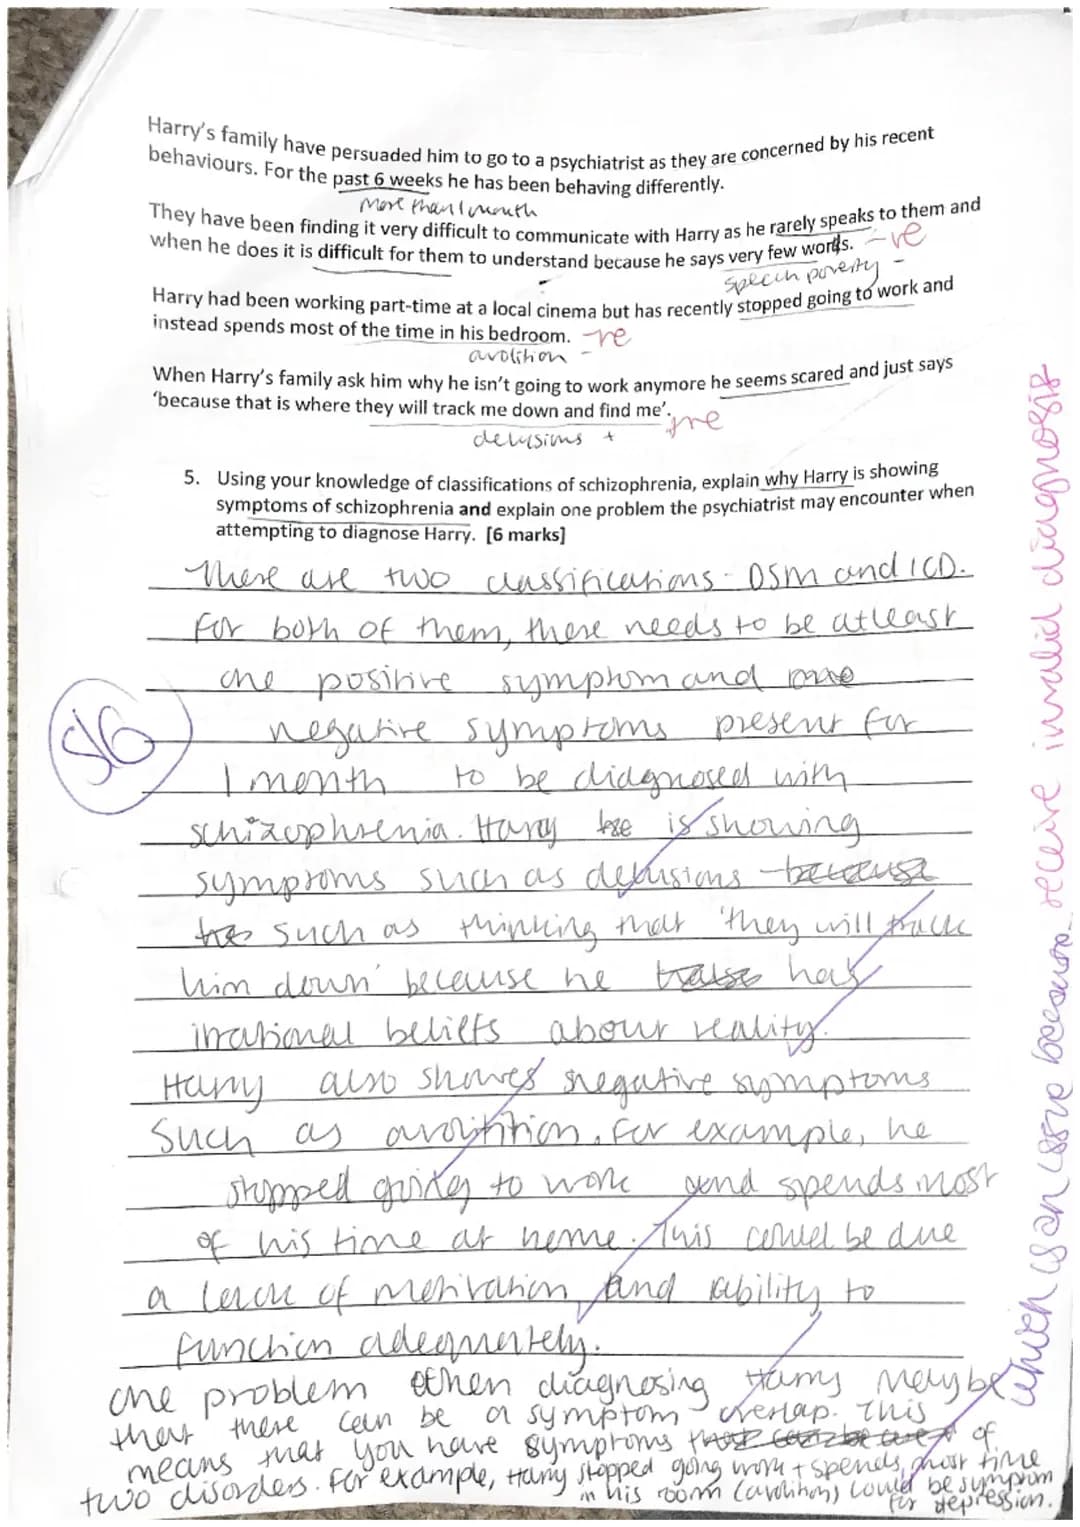 Harry's family have persuaded him to go to a psychiatrist as they are concerned by his recent
behaviours. For the past 6 weeks he has been behaving differently.
More than 1 month
They have been finding it very difficult to communicate with Harry as he rarely speaks to them and
when he does it is difficult for them to understand because he says very few words. -ve
speech poverty -
Harry had been working part-time at a local cinema but has recently stopped going to work and
instead spends most of the time in his bedroom. -ve
avolition -
When Harry's family ask him why he isn't going to work anymore he seems scared and just says
'because that is where they will track me down and find me'. +ve
delusions +
5. Using your knowledge of classifications of schizophrenia, explain why Harry is showing
symptoms of schizophrenia and explain one problem the psychiatrist may encounter when
attempting to diagnose Harry. [6 marks]
There are two classifications - DSM and ICD.
For both of them, there needs to be atleast
one positive symptom and
negative symptoms present for
5/6
1 month to be diagnosed with
schizophrenia. Harry is showing
symptoms such as delusions because
such as thinking that 'they will track
him down' because he has
irrational beliefs about reality.
Harry also shows negative symptoms
such as avolition. For example, he
stopped going to work and spends most
of his time at home. This could be due
a lack of motivation and ability to
function adequately.
One problem when diagnosing Harry may be
that there can be a symptom overlap. This
means that you have symptoms of
two disorders. For example, Harry stopped going work + spends most time
in his room (avolition) could be symptom
for depression.
which is an issue because receive invalid diagnosis